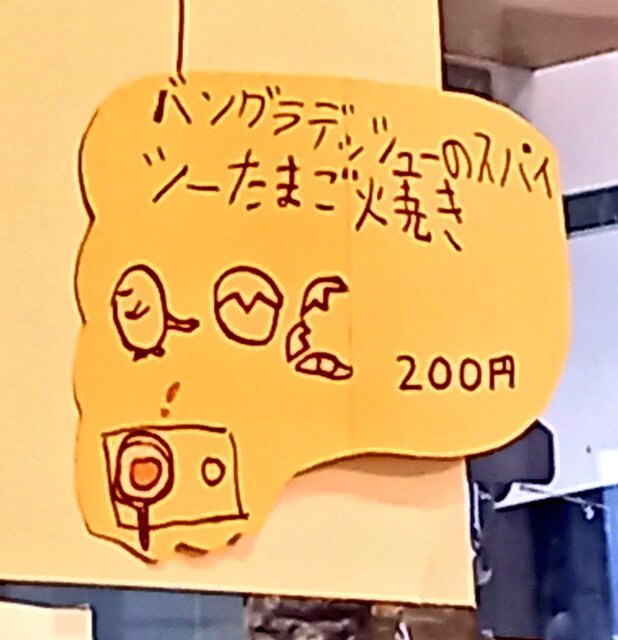 バングラデッシューのスパイ
シーたまご焼き
200円